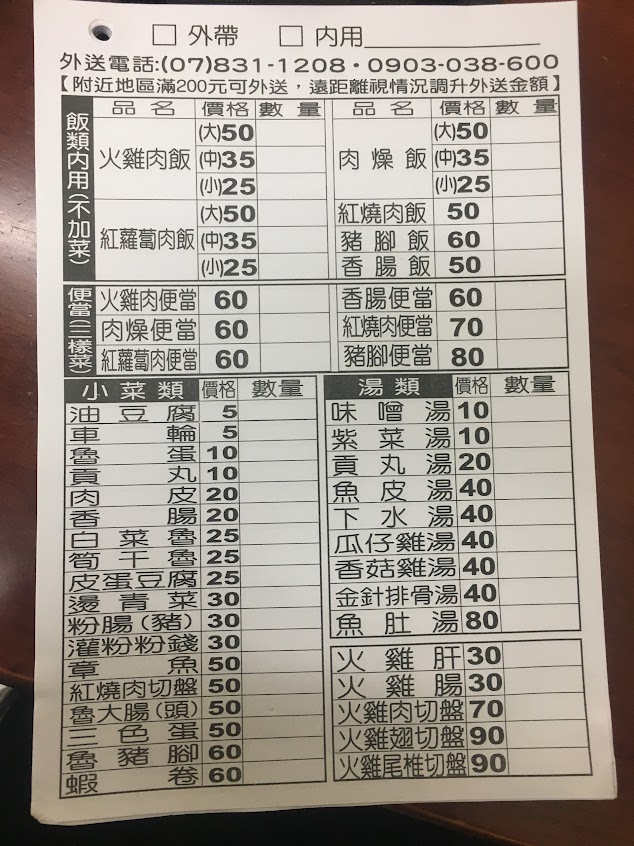 □ 外帶 □ 內用
外送電話:(07)831-1208・0903-038-600
【附近地區滿200元可外送，遠距離視情況調升外送金額】
飯類內用(不加菜)
品名 價格 數量
火雞肉飯 (大)50
(中)35
(小)25
紅蘿蔔肉飯 (大)50
(中)35
(小)25
品名 價格 數量
肉燥飯 (大)50
(中)35
(小)25
紅燒肉飯 50
豬腳飯 60
香腸飯 50
便當(三樣菜)
火雞肉便當 60
肉燥便當 60
紅蘿蔔肉便當 60
香腸便當 60
紅燒肉便當 70
豬腳便當 80
小菜類 價格 數量
油豆腐 5
車輪 5
魯蛋 10
貢丸 10
肉皮 20
香腸 20
白菜魯 25
筍干魯 25
皮蛋豆腐 25
燙青菜 30
粉腸(豬) 30
灌粉粉錢 30
章魚 50
紅燒肉切盤 50
魯大腸(頭) 50
三色蛋 50
魯豬腳 60
蝦卷 60
湯類 價格 數量
味噌湯 10
紫菜湯 10
貢丸湯 20
魚皮湯 40
下水湯 40
瓜仔雞湯 40
香菇雞湯 40
金針排骨湯 40
魚肚湯 80
火雞肝 30
火雞腸 30
火雞肉切盤 70
火雞翅切盤 90
火雞尾椎切盤 90